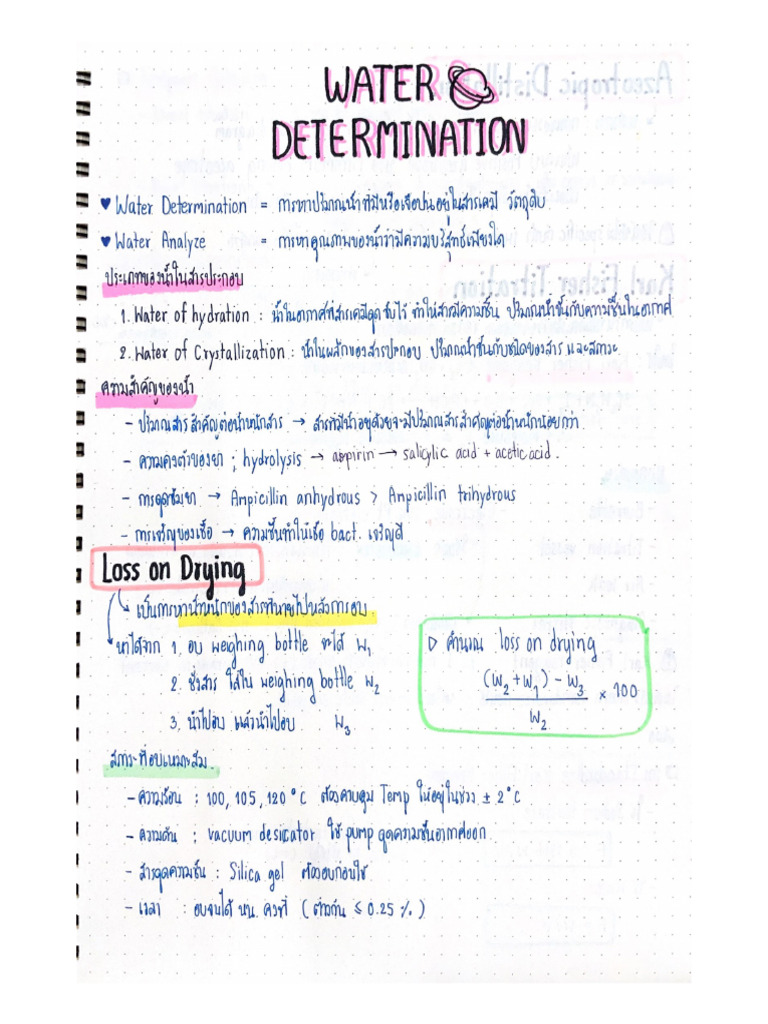 WATER
DETERMINATION
♥ Water Determination = การหาปริมาณน้ำที่มีหรือเจือปนอยู่ในสารเคมี วัตถุดิบ
♥ Water Analyze = การหาคุณภาพของน้ำว่ามีความบริสุทธิ์เพียงใด
ประเภทของน้ำในสารประกอบ
1. Water of hydration : น้ำในอากาศที่สารเคมีดูดซับไว้ ทำให้สารมีความชื้น ปริมาณน้ำขึ้นกับความชื้นในอากาศ
2. Water of Crystallization : น้ำในผลึกของสารประกอบ ปริมาณน้ำขึ้นกับชนิดของสาร และสภาวะ
ความสำคัญของน้ำ
- ปริมาณสารสำคัญต่อน้ำหนักสาร → สารที่มีน้ำอยู่ด้วยจะมีปริมาณสารสำคัญต่อน้ำหนักน้อยกว่า
- ความคงตัวของยา ; hydrolysis → aspirin → salicylic acid + acetic acid.
- การดูดซึมยา → Ampicillin anhydrous > Ampicillin trihydrous
- การเจริญของเชื้อ → ความชื้นทำให้เชื้อ bact. เจริญดี
Loss on Drying
เป็นการหาน้ำหนักของสารที่หายไปหลังการอบ
หาได้จาก 1. อบ weighing bottle จะได้ W₁
2. ชั่งสาร ใส่ใน weighing bottle W₂
3. นำไปอบ แล้วนำไปอบ W₃
▷ คำนวณ loss on drying
(W₂+W₁) - W₃
× 100
W₂
สภาวะที่อบเหมาะสม.
- ความร้อน : 100, 105, 120 °C ต้องควบคุม Temp ให้อยู่ในช่วง ± 2 °C
- ความดัน ; vacuum desicator ใช้ pump ดูดความชื้นอากาศออก
- สารดูดความชื้น : Silica gel ต้องอบก่อนใช้
- เวลา : อบจนได้ นน. คงที่ ( ต่างกัน ≤ 0.25 % )